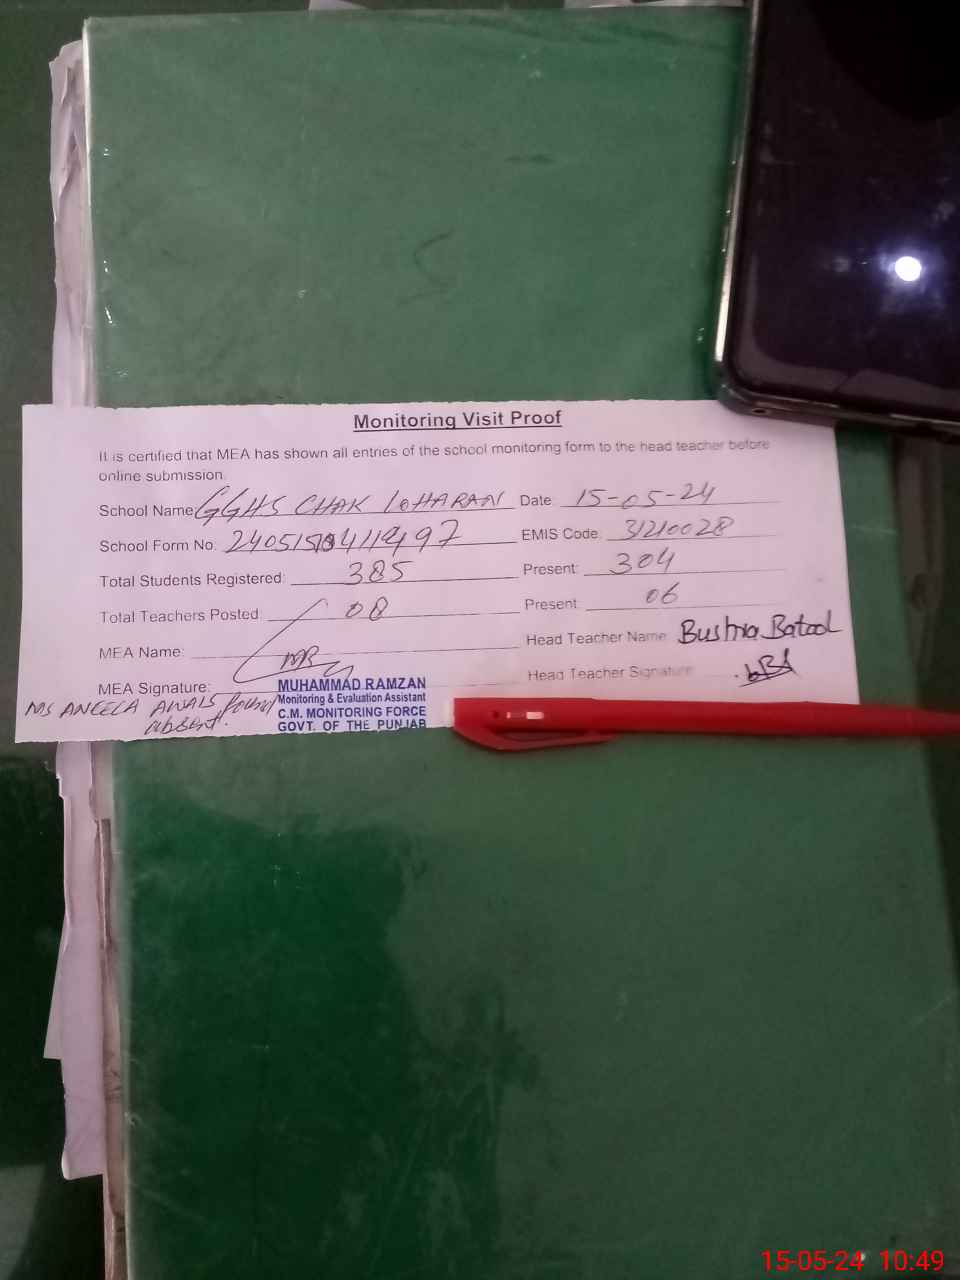 Monitoring Visit Proof
It is certified that MEA has shown all entries of the school monitoring form to the head teacher before
online submission.
School Name: GGHS CHAK LOHARAN Date: 15-05-24
School Form No: EMIS Code: 31210028
Total Students Registered: 385 Present: 304
Total Teachers Posted: 08 Present: 06
MEA Name: Head Teacher Name: Bushra Batool
MEA Signature: Head Teacher Signature:
MS ANEELA AWAIS found
absent.
MUHAMMAD RAMZAN
Monitoring & Evaluation Assistant
C.M. MONITORING FORCE
GOVT. OF THE PUNJAB
15-05-24 10:49